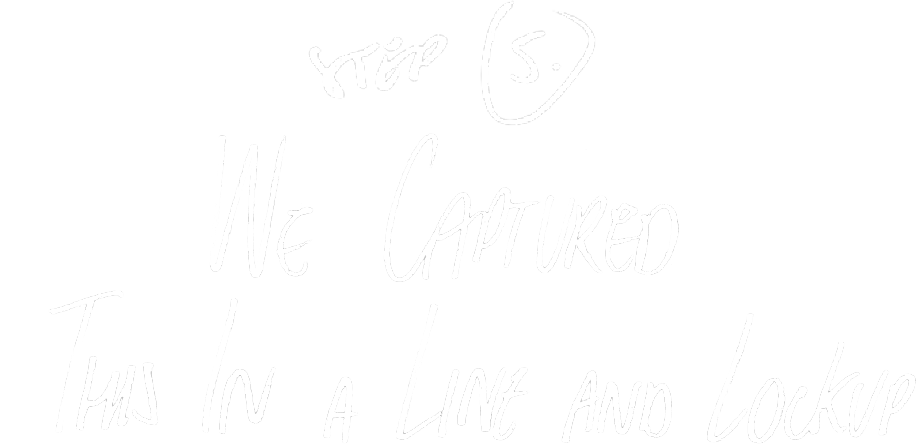 STEP 5.
WE CAPTURED
THIS IN A LINE AND LOCKUP